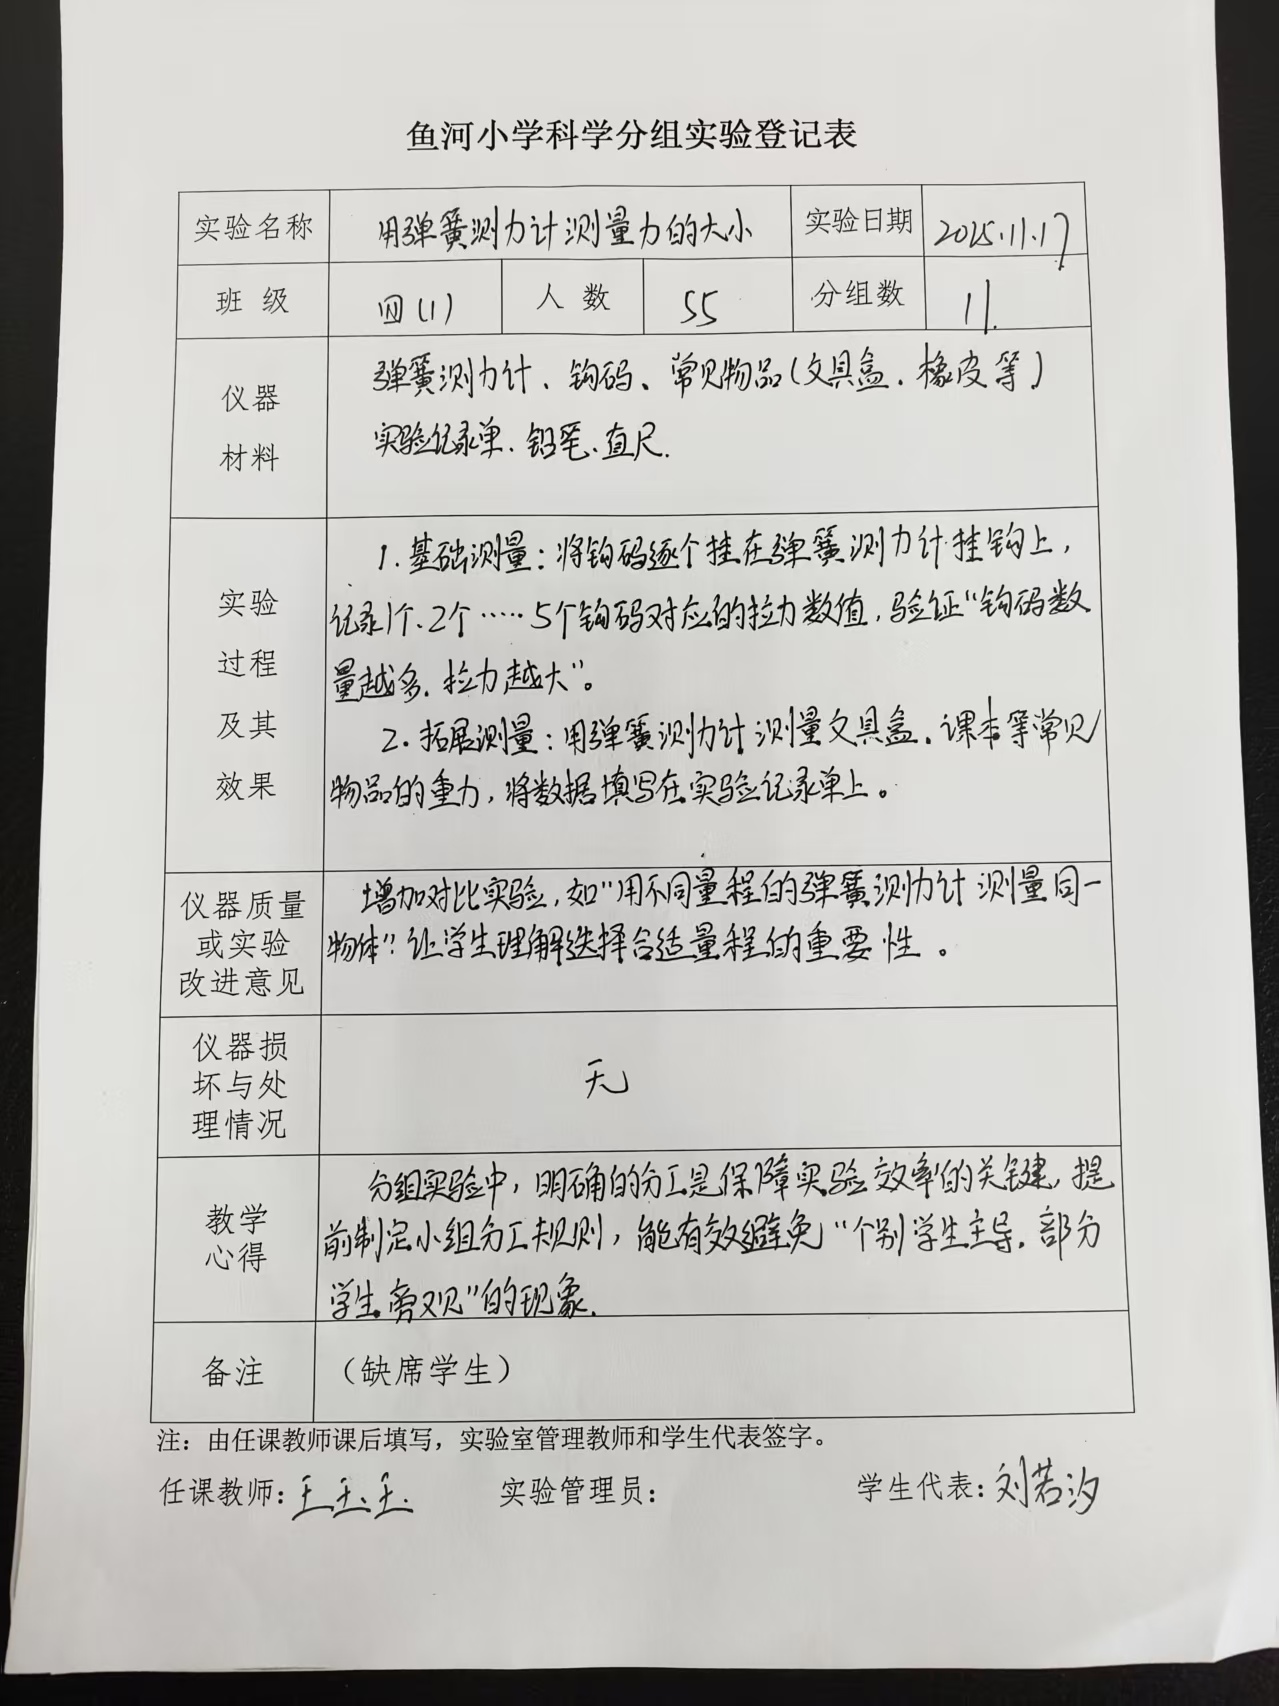 鱼河小学科学分组实验登记表
实验名称 用弹簧测力计测量力的大小 实验日期 2025.11.17
班 级 四(1) 人 数 55 分组数 11.
仪器
材料
弹簧测力计、钩码、常见物品(文具盒、橡皮等)
实验记录单、铅笔、直尺.
实验
过程
及其
效果
1.基础测量:将钩码逐个挂在弹簧测力计挂钩上,
记录1个、2个……5个钩码对应的拉力数值,验证“钩码数
量越多,拉力越大”。
2.拓展测量:用弹簧测力计测量文具盒、课本等常见
物品的重力,将数据填写在实验记录单上。
仪器质量
或实验
改进意见
增加对比实验,如“用不同量程的弹簧测力计测量同一
物体”让学生理解选择合适量程的重要性。
仪器损
坏与处
理情况
无
教学
心得
分组实验中,明确的分工是保障实验效率的关键,提
前制定小组分工规则,能有效避免“个别学生主导、部分
学生旁观”的现象.
备注 (缺席学生)
注:由任课教师课后填写,实验室管理教师和学生代表签字。
任课教师: 实验管理员: 学生代表:刘若汐